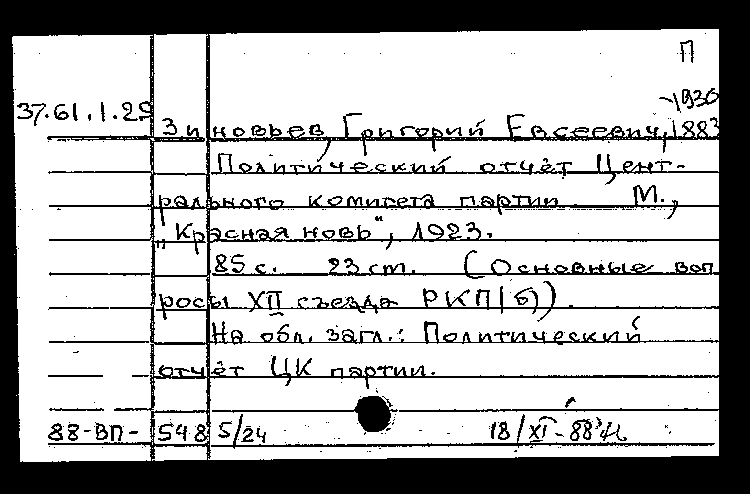 П
37.61.1.29 -1936
Зиновьев, Григорий Евсеевич, 1883
Политический отчёт Цент-
рального комитета партии М.,
„Красная новь", 1923.
85 с. 23 ст. (Основные воп
росы XII съезда РКП(б)).
На обл. загл.: Политический
отчёт ЦК партии.
88-ВП-548 5/24 18/XI-88